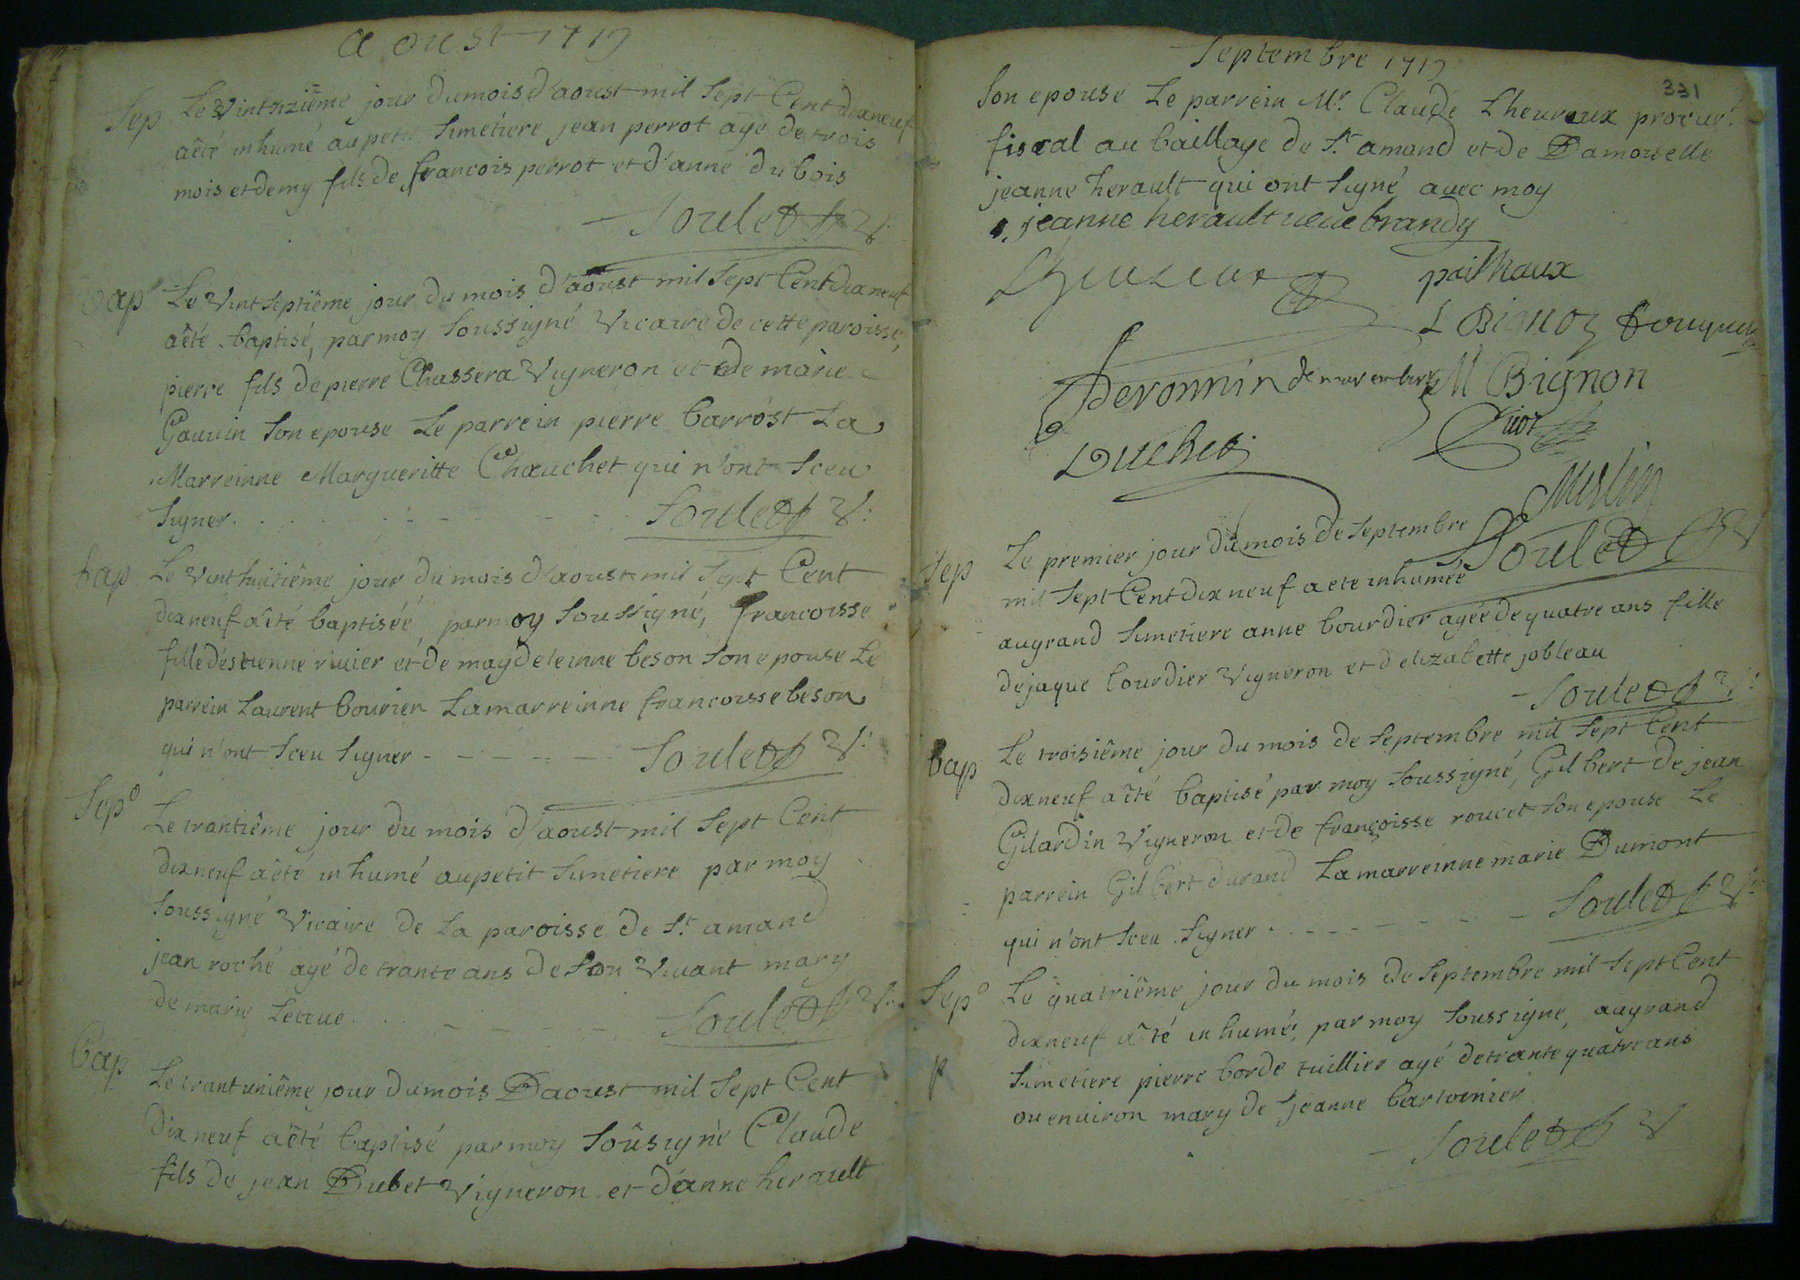 aoust 1719
Sep Le vintsizième jour dumois d'aoust mil Sept Cent dixneuf
aêté inhumé aupetit Simetiere jean perrot agé de trois
mois et demy fils de francois perrot et d'anne du bois
Soulet V:
bap Le Vintseptiême jour du mois d'aoust mil Sept Cent dixneuf
aêté baptisé, par moy Soussigné Vicaire de cette paroisse,
pierre fils de pierre Chassera Vigneron et de marie
Gauvin Son epouse Le parrein pierre barrost La
Marreinne Margueritte Chauchet qui n'ont Sceu
Signer. Soulet V:
bap Le Vinthuitiême jour du mois d'aoust mil Sept Cent
dixneuf aêté baptiséé, par moy Soussigné, francoisse
fille déstienne rivier et de maydeleinne beson Son epouse Le
parrein Laurent bourien Lamarreinne francoisse beson
qui n'ont Sceu Signer - - - - - Soulet V:
Sep° Le trantiême jour du mois d'aoust mil Sept Cent
dixneuf aêté inhumé aupetit Simetiere par moy
Soussigné Vicaire de La paroisse de St. amand
jean roché agé de trante ans de Son Vivant mary
de marie
Soulet V:
bap Le trantuniême jour dumois Daoust mil Sept Cent
Dixneuf aêté baptisé par moy Soûsigné Claude
fils de jean Dubet Vigneron et d'anne herault
Septembre 1719
331
Son epouse Le parrein Mr. Claude Lheureux procur.r
fiscal au baillage de St. amand et de Damoiselle
jeanne herault qui ont Signé avec moy
jeanne herault veue brandy
Lheureux pailhoux
L Bignon
M Bignon
Duchet
Merlin
Soulet V
Sep Le premier jour du mois de Septembre
mil Sept Cent dix neuf a ete inhumée
augrand Simetiere anne bourdier agéé de quatre ans fille
dejaque bourdier Vigneron et d'elizabette jobleau
Soulet V:
bap Le troisiême jour du mois de Septembre mil Sept Cent
dixneuf aêté baptisé par moy Soussigné, Gilbert de jean
Gilardin Vigneron et de françoisse roucet Son epouse Le
parrein Gilbert durand Lamarreinne marie Dumont
qui n'ont Sceu Signer - - - - - Soulet V:
Sep° Le quatriême jour du mois de Septembre mil Sept Cent
dixneuf aêté inhumé, par moy Soussigné, augrand
p Simetiere pierre borde tuillier agé detrante quatre ans
ou environ mary de jeanne bartoinier
Soulet V